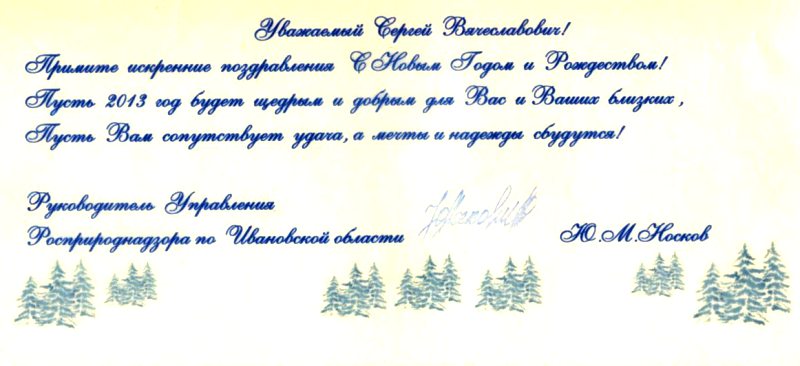 Уважаемый Сергей Вячеславович!
Примите искренние поздравления С Новым Годом и Рождеством!
Пусть 2013 год будет щедрым и добрым для Вас и Ваших близких ,
Пусть Вам сопутствует удача, а мечты и надежды сбудутся!
Руководитель Управления
Росприроднадзора по Ивановской области Ю.М.Носков